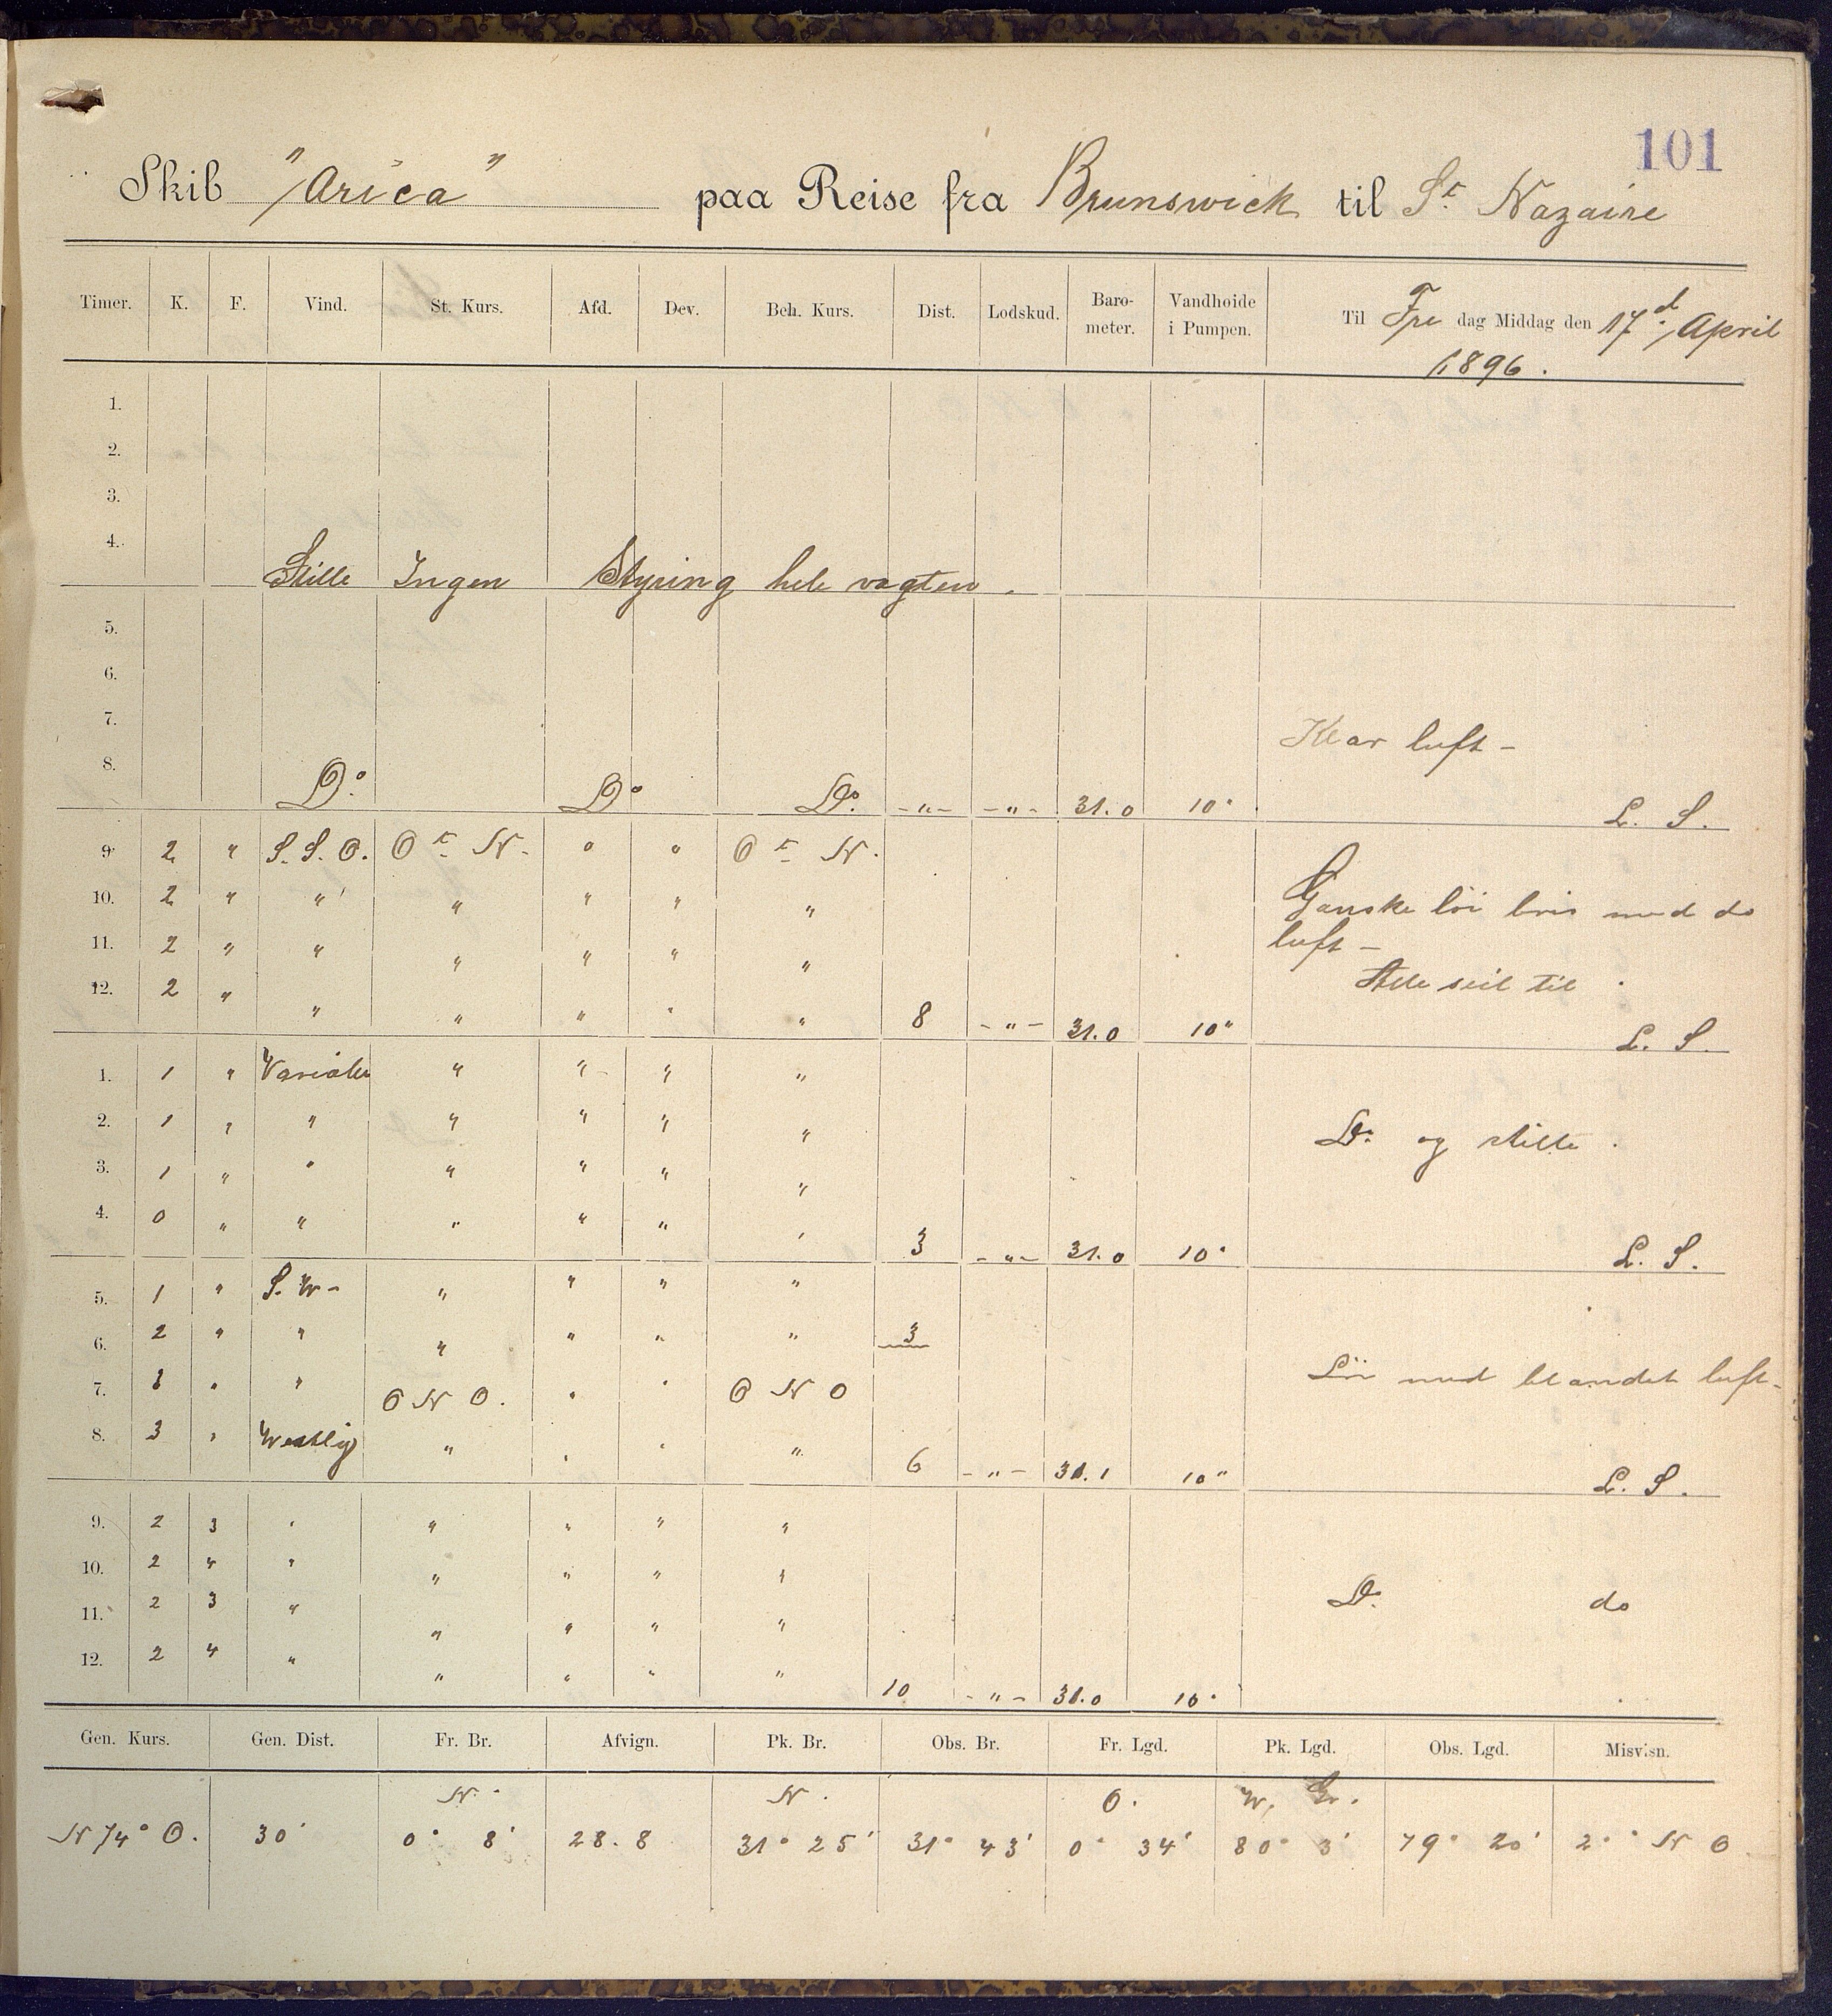 101
Skib "Arica" paa Reise fra Brunswick til St. Nazaire
Timer. K. F. Vind. St. Kurs. Afd. Dev. Beh. Kurs. Dist. Lodskud. Baro-meter. Vandhoide i Pumpen. Til Fre dag Middag den 17d April
1896.
1.
2.
3.
4.
Stille Ingen Styring hele vagten.
5.
6.
7. Klar luft -
8.
Do Do Do. -"- -"- 31.0 10"
L. S.
9. 2 " S. S. O. O t. N. " " O t. N.
10. 2 " " " " " " Ganske löi bris med do
11. 2 " " " " " " luft -
Alle seil til.
12. 2 " " " " " " 8 -"- 31.0 10"
L. S.
1. 1 " Variabel " " " "
2. 1 " " " " " " Do og stille.
3. 1 " " " " " "
4. 0 " " " " " " 3 -"- 31.0 10"
L. S.
5. 1 " S. W - " " " "
6. 2 " " " " " " 3
7. " " O N O. " " O N O Löi med blandet luft -
8. 3 " Westlig " " " " 6 -"- 31.1 10"
L. S.
9. 2 3 " " " " "
10. 2 4 " " " " " Do do
11. 2 3 " " " " "
12. 2 4 " " " " " 10 -"- 31.0 10"
Gen. Kurs. Gen. Dist. Fr. Br. Afvign. Pk. Br. Obs. Br. Fr. Lgd. Pk. Lgd. Obs. Lgd. Misvisn.
N. N. O. W. Gr.
N 74° O. 30' 0° 8' 28.8 31° 25' 31° 43' 0° 34' 80° 3' 79° 20' 2° N O